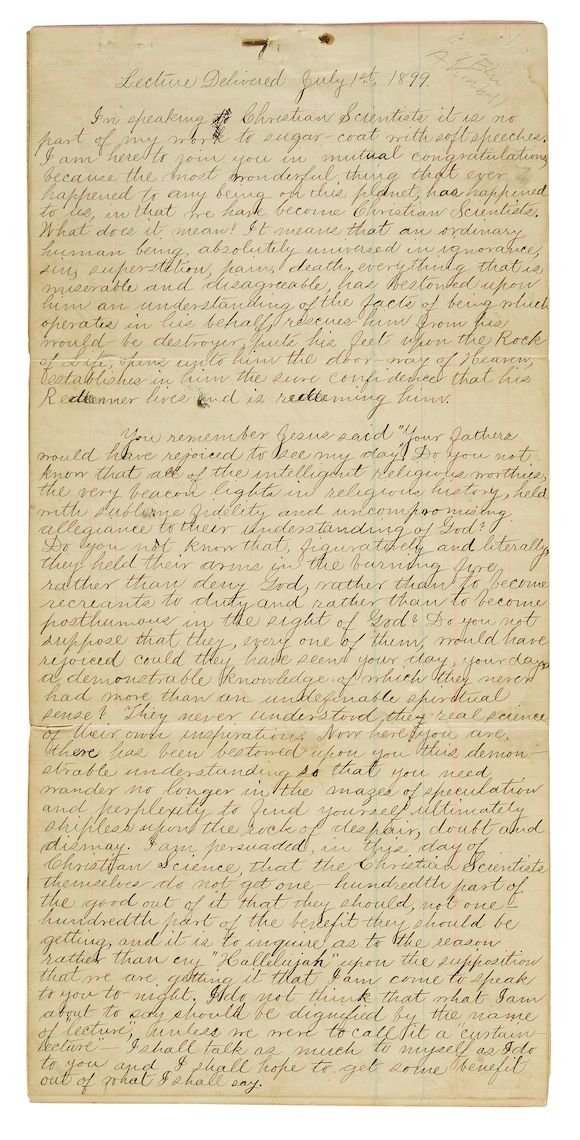 Lecture Delivered July 1st, 1899.
In speaking to Christian Scientists it is no
part of my work to sugar-coat with soft speeches.
I am here to join you in mutual congratulations,
because the most wonderful thing that ever
happened to any being on this planet, has happened
to us, in that we have become Christian Scientists.
What does it mean? It means that an ordinary
human being, absolutely universed in ignorance,
sin, superstition, pain, death, everything that is
miserable and disagreeable, has bestowed upon
him an understanding of the facts of being which
operates in his behalf, rescues him from his
would be destroyer, puts his feet upon the Rock
of Life, opens up to him the door way of Heaven,
establishes in him the sure confidence that his
Redeemer lives and is redeeming him.
You remember Jesus said "Your fathers
would have rejoiced to see my day". Do you not
know that all of the intelligent religious worthies,
the very beacon lights in religious history, held
with sublime fidelity and uncompromising
allegiance to their understanding of God?
Do you not know that, figuratively and literally,
they held their arms in the burning fire,
rather than deny God, rather than to become
recreants to duty and rather than to become
posthumous in the sight of God? Do you not
suppose that they, every one of them, would have
rejoiced could they have seen your day, your day,
a demonstrable knowledge of which they never
had more than an undefinable spiritual
sense? They never understood they real science
of their own inspiration. Now here you are,
there has been bestowed upon you this demon-
strable understanding so that you need
wander no longer in the mazes of speculation
and perplexity to find yourself ultimately
shipless upon the rock of despair, doubt and
dismay. I am persuaded, in this day of
Christian Science, that the Christian Scientists
themselves do not get one-hundredth part of
the good out of it that they should, not one-
hundredth part of the benefit they should be
getting, and it is to inquire as to the reason
rather than cry "Hallelujah" upon the supposition
that we are getting it that I am come to speak
to you to night. I do not think that what I am
about to say should be dignified by the name
of "lecture", unless we were to call it a "curtain-
lecture" - I shall talk as much to myself as I do
to you and I shall hope to get some benefit
out of what I shall say.